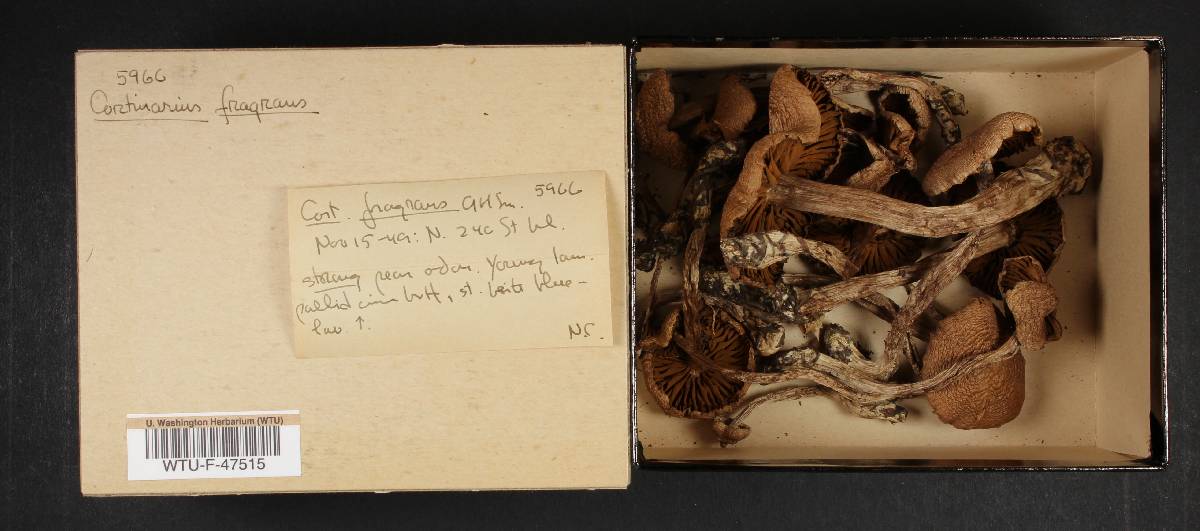 5966
Cortinarius fragrans
Cort. fragrans AHSm. 5966
Nov 15-49: N. 240 St
strong pear odor. Young lam.
pallid cinn buff, st. blue-
lav ↑.
NS.
U. Washington Herbarium (WTU)
WTU-F-47515